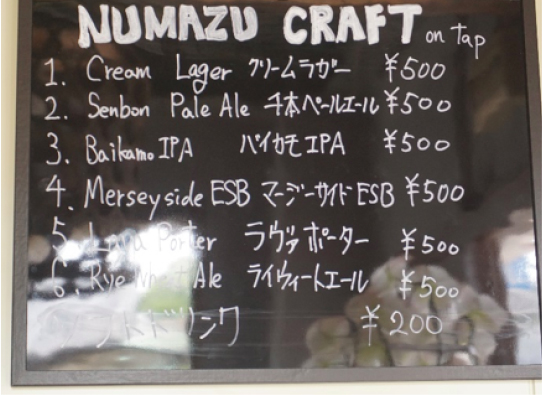 NUMAZU CRAFT on tap
1. Cream Lager クリームラガー ¥500
2. Senbon Pale Ale 千本ペールエール ¥500
3. Baikamo IPA バイカモ IPA ¥500
4. Merseyside ESB マージーサイド ESB ¥500
5. Lava Porter ラヴァポーター ¥500
6. Rye Wheat Ale ライウィートエール ¥500
ソフトドリンク ¥200